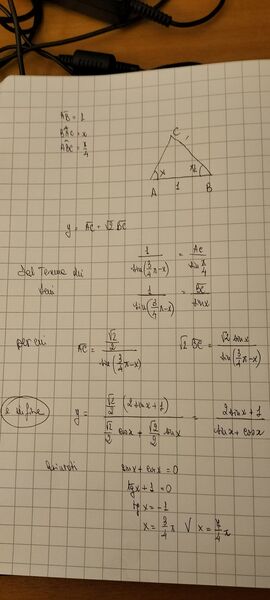 AB = 1
BÂC = x
AB̂C = π/4
C
x
π/4
A 1 B
y = AC + √2 BC
dal Teorema dei seni
1/sin(3/4π-x) = AC/sin π/4
1/sin(3/4π-x) = BC/sin x
per cui AC = (√2/2)/sin(3/4π-x) √2 BC = √2 sin x/sin(3/4π-x)
e infine y = √2/2 (2 sin x + 1)/(√2/2 cos x + √2/2 sin x) = (2 sin x + 1)/(sin x + cos x)
sin x + cos x = 0
tg x + 1 = 0
tg x = -1
x = 3/4 π ∨ x = 7/4 π